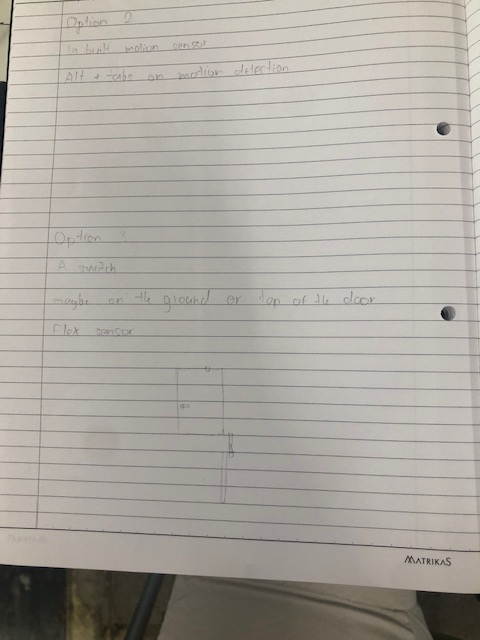 Option 2
In built motion sensor
Alt + tabs on motion detection
Option 3
A switch
maybe on the ground or top of the door
Flex sensor
MATRIKAS